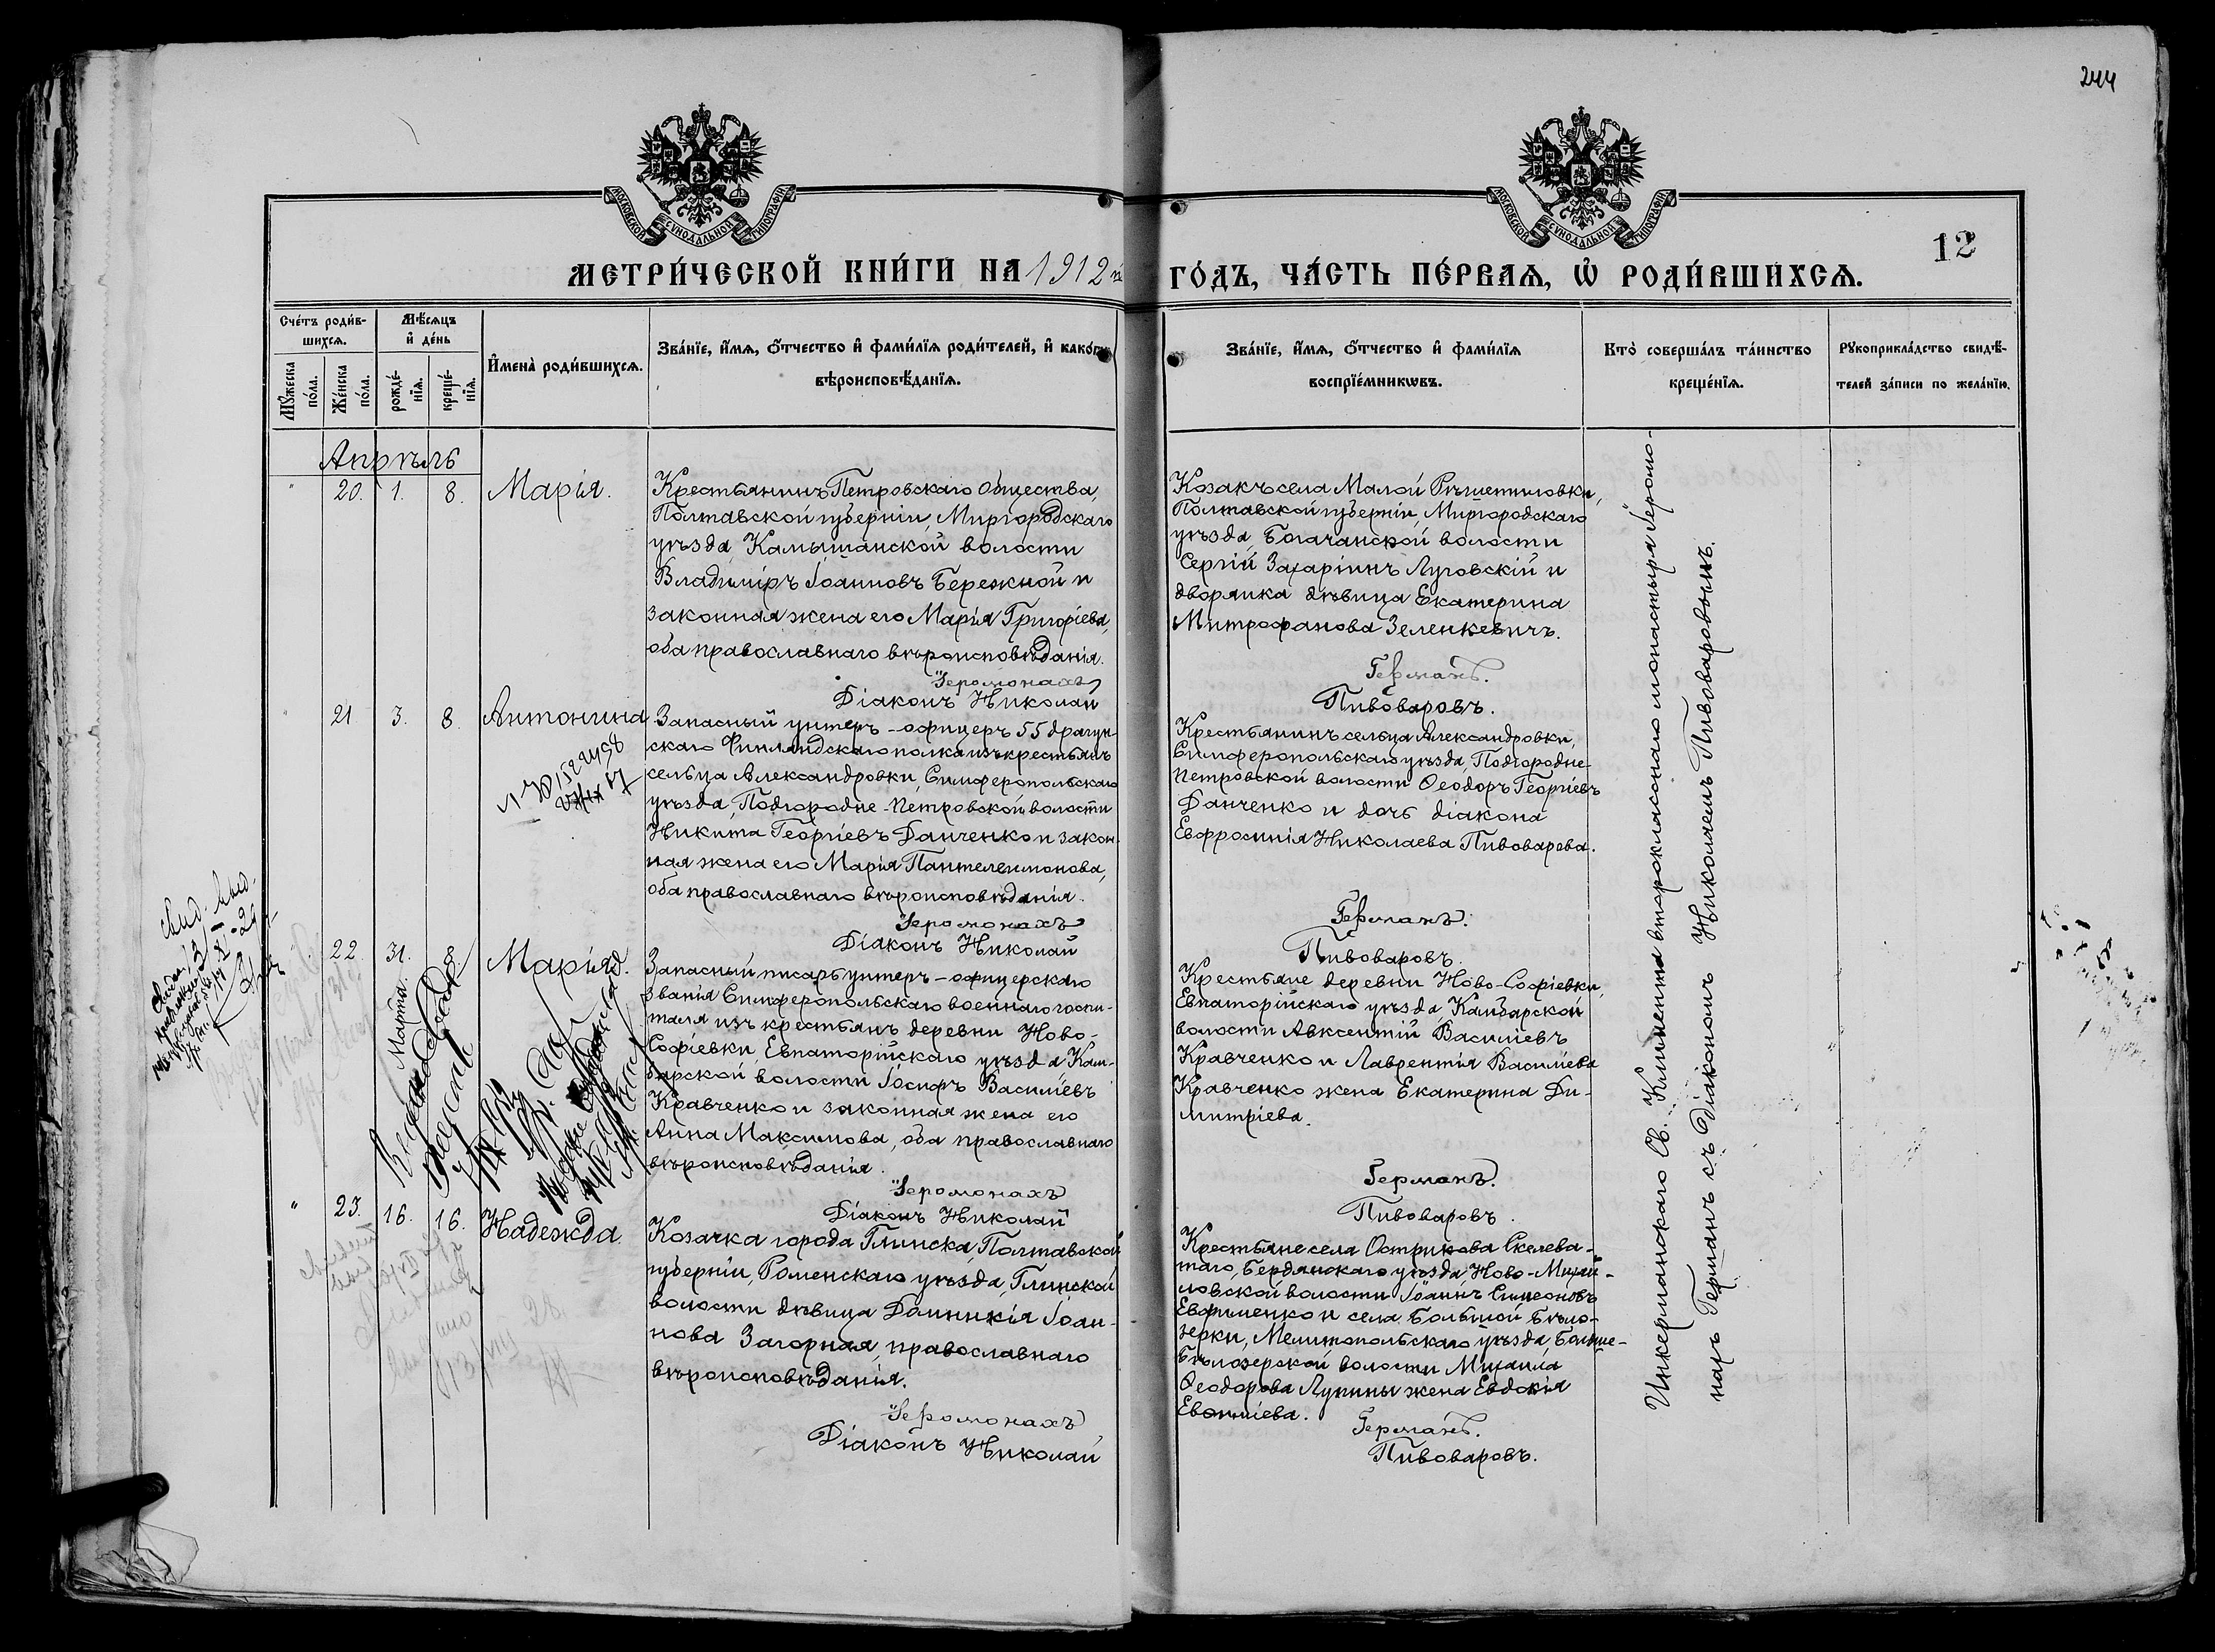 244
МОСКОВСКОЙ СѴНОДАЛЬНОЙ ТИПОГРАФІИ
МОСКОВСКОЙ СѴНОДАЛЬНОЙ ТИПОГРАФІИ
12
МЕТРИ́ЧЕСКОЙ КНИ́ГИ НА 1912й
ГО́ДЪ, ЧА́СТЬ ПЕ́РВАѦ, Ѡ҆ РОДИ́ВШИХСѦ.
Сче́тъ роди́в-
шихсѧ.
Мꙋ́жеска
по́ла.
Же́нска
по́ла.
Мѣ́сѧцъ
и҆ де́нь
рожде́-
нїѧ.
креще́-
нїѧ.
И҆мена̀ роди́вшихсѧ.
Зва́нїе, и҆́мѧ, ѻ҆́тчество и҆ фами́лїѧ роди́телей, и҆ како́гѡ
вѣроисповѣ́данїѧ.
Зва́нїе, и҆́мѧ, ѻ҆́тчество и҆ фами́лїѧ
воспрїе́мникѡвъ.
Кто̀ соверша́лъ та́инство
креще́нїѧ.
Рꙋкоприкла́дство свидѣ́-
телей за́писи по жела́нїю.
Апрѣль
" 20. 1. 8. Марія.
Крестьянинъ Петровскаго общества,
Полтавской губерніи, Миргородскаго
уѣзда, Камышанской волости
Владиміръ Іоанновъ Бережной и
законная жена его Марія Григоріева,
оба православнаго вѣроисповѣданія.
Іеромонахъ
Діаконъ Николай
Козакъ села Малой Рѣшетиловки,
Полтавской губерніи, Миргородскаго
уѣзда, Богачанской волости
Сергій Захаріинъ Луговскій и
дворянка дѣвица Екатерина
Митрофанова Зеленкевичъ.
Германъ.
Пивоваровъ.
" 21 3. 8. Антонина
Запасный унтеръ-офицеръ 55 драгун-
скаго Финляндскаго полка изъ крестьянъ
сельца Александровки, Симферопольскаго
уѣзда, Подгородне-Петровской волости
Никита Георгіевъ Данченко и закон-
ная жена его Марія Пантелеимонова,
оба православнаго вѣроисповѣданія.
Іеромонахъ
Діаконъ Николай
Крестьянинъ сельца Александровки,
Симферопольскаго уѣзда, Подгородне-
Петровской волости Ѳеодоръ Георгіевъ
Данченко и дочь діакона
Евфросинія Николаева Пивоварова.
Германъ.
Пивоваровъ.
22. 31. Марта. 8. Марія
Запасный писарь унтеръ-офицерскаго
званія Симферопольскаго военнаго госпи-
таля изъ крестьянъ деревни Ново-
Софіевки, Евпаторійскаго уѣзда Кам-
барской волости Іосифъ Василіевъ
Кравченко и законная жена его
Анна Максимова, оба православнаго
вѣроисповѣданія.
Іеромонахъ
Діаконъ Николай
Крестьяне деревни Ново-Софіевки,
Евпаторійскаго уѣзда, Камбарской
волости Авксентій Василіевъ
Кравченко и Лаврентія Василіева
Кравченко жена Екатерина Ди-
митріева.
Германъ.
Пивоваровъ.
" 23. 16. 16. Надежда.
Козачка города Глинска, Полтавской
губерніи, Роменскаго уѣзда, Глинской
волости дѣвица Домникія Іоан-
нова Загорная, православнаго
вѣроисповѣданія.
Іеромонахъ
Діаконъ Николай
Крестьяне села Острикова Скелева-
таго, Бердянскаго уѣзда, Ново-Михай-
ловской волости Іоаннъ Симеоновъ
Ефименко и села Большой Бѣло-
зерки, Мелитопольскаго уѣзда, Больше-
Бѣлозерской волости Михаила
Ѳеодорова Лупины жена Евдокія
Германъ.
Пивоваровъ.
Инкерманскаго Св. Климента второкласснаго монастыря Іеромо-
нахъ Германъ съ Діакономъ Николаемъ Пивоваровымъ.